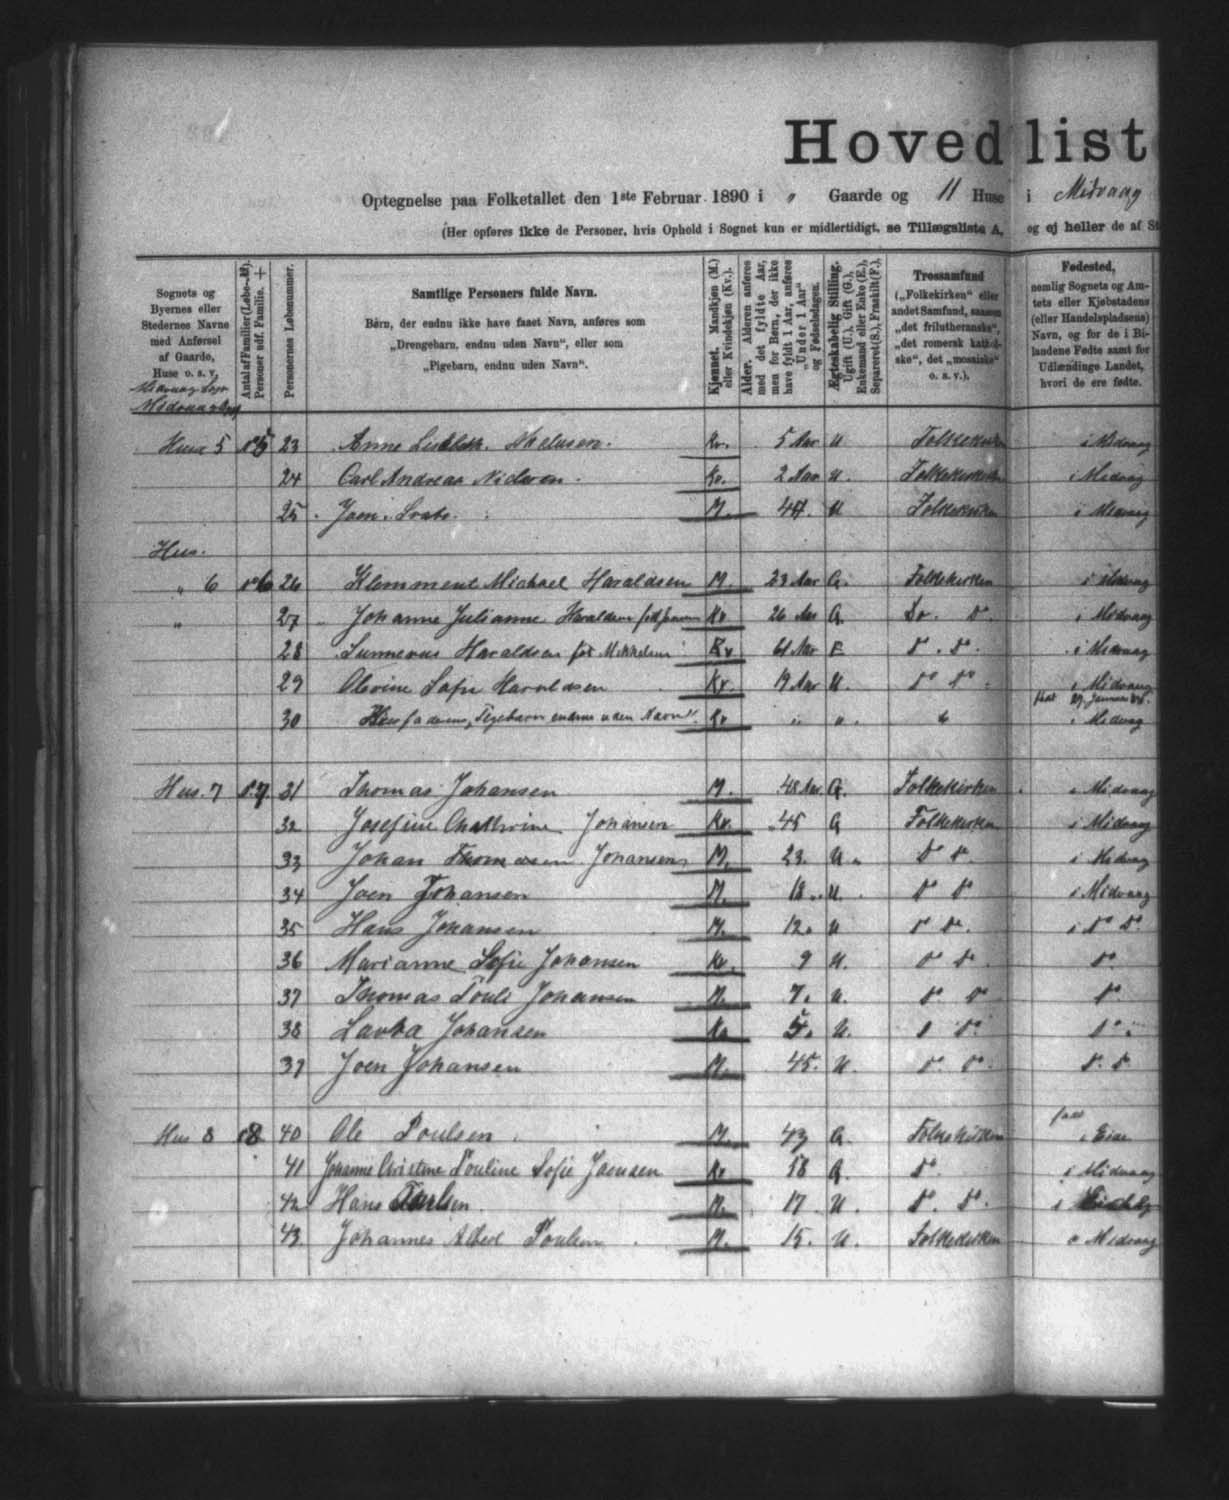 Hovedlist
Optegnelse paa Folketallet den 1ste Februar 1890 i „ Gaarde og 11 Huse i Midvaag
(Her opføres ikke de Personer, hvis Ophold i Sognet kun er midlertidigt, se Tillægsliste A, og ej heller de af St
Sognets og
Byernes eller
Stedernes Navne
med Anførsel
af Gaarde,
Huse o. s. v.
Antal af Familier (Løbe-№).
Personer udf. Familie. +
Personernes Løbenummer.
Samtlige Personers fulde Navn.
Børn, der endnu ikke have faaet Navn, anføres som
„Drengebarn, endnu uden Navn", eller som
„Pigebarn, endnu uden Navn".
Kjønnet. Mandkjøn (M.)
eller Kvindekjøn (Kv.).
Alder. Alderen anføres
med det fyldte Aar,
men for Børn, der ikke
have fyldt 1 Aar, anføres
„Under 1 Aar"
og Fødselsdagen.
Ægteskabelig Stilling.
Ugift (U.), Gift (G.),
Enkemand eller Enke (E.),
Separeret (S.), Fraskilt (F.),
Trossamfund
(„Folkekirken" eller
andet Samfund, saasom
„det frilutheranske",
„det romersk kathol-
ske", det „mosaiske"
o. s. v.).
Fødested,
nemlig Sognets og Am-
tets eller Kjøbstadens
(eller Handelspladsens)
Navn, og for de i Bi-
landene Fødte samt for
Udlændinge Landet,
hvori de ere fødte.
Huus 5 5 23 Anne Kv. 5 Aar U Folkekirken i Midvaag
24 Carl Andreas Kv. 2 Aar U. Folkekirken i Midvaag
25 Joen M. U Folkekirken i Midvaag
Hus.
„ 6 6 26 Klemment Michael Haraldsen M. 23 Aar G. Folkekirken i Midvaag
„ 27 Johanne Julianne Haraldsen Kv. 26 Aar G. Do. Do. i Midvaag
28 Sunneva Haraldsen fød Mikkelsen Kv 61 Aar E Do. Do. i Midvaag
29 Olevine Sofie Haraldsen Kv. 19 Aar U. Do Do. i Midvaag
30 Pigebarn endnu uden Navn" Kv „ „ „ i Midvaag
Hus. 7 7. 31 Thomas Johansen M. 48 Aar. G. Folkekirken i Midvaag
32 Josefine Cathrine Johansen Kv. 45 G Folkekirken i Midvaag
33 Johan Johansen M. 23. U. Do Do. i Midvaag
34 Joen Johansen M. 18. U. Do Do i Midvaag
35 Hans Johansen M. 12. U Do Do. i Do Do
36 Marianne Sofie Johansen Kv. 9 U. Do Do Do
37 Thomas Pouli Johansen M. 7. U. Do Do Do
38 Johansen Kv 5. U. Do Do Do
39 Joen Johansen M. 45. U. Do. Do. Do. Do
Hus 8 8 40 Ole Poulsen M. 43 G. Folkekirken i Eide
41 Johanne Christine Pouline Sofie Joensen Kv 58 G. Do. i Midvaag
42 Hans Poulsen. M. 17 U. Do. Do. i
43. Johannes Albert Poulsen M. 15. U. Folkekirken o Midvaag